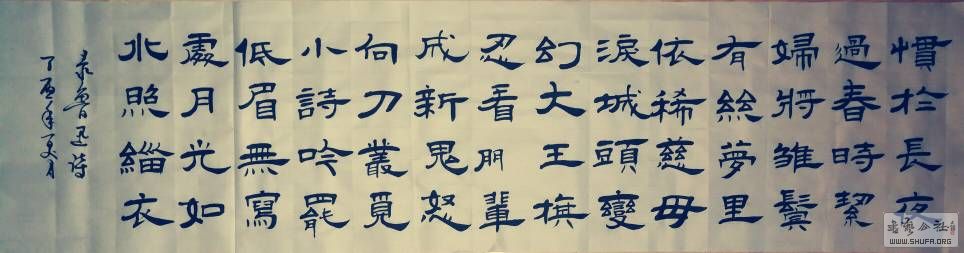 慣於長夜
過春時絜
婦將雛鬢
有絲夢里
依稀慈母
淚城頭變
幻大王旗
忍看朋輩
成新鬼怒
向刀叢覓
小詩吟罷
低眉無寫
處月光如
水照緇衣
录魯迅詩
丁酉年夏月
书艺公社
WWW.SHUFA.ORG